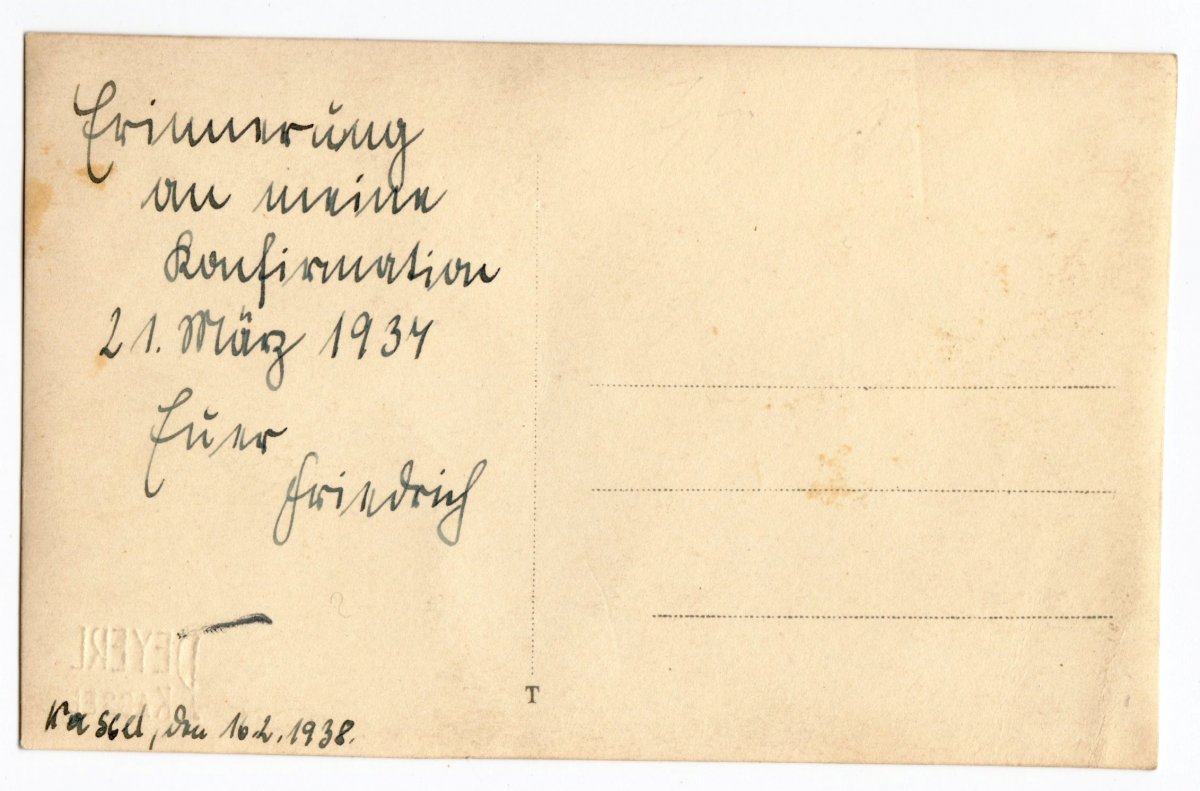 Erinnerung
an meine
Konfirmation
21. März 1937
Euer
Friedrich
T
KASSEL
Kassel, den 16.2.1938.